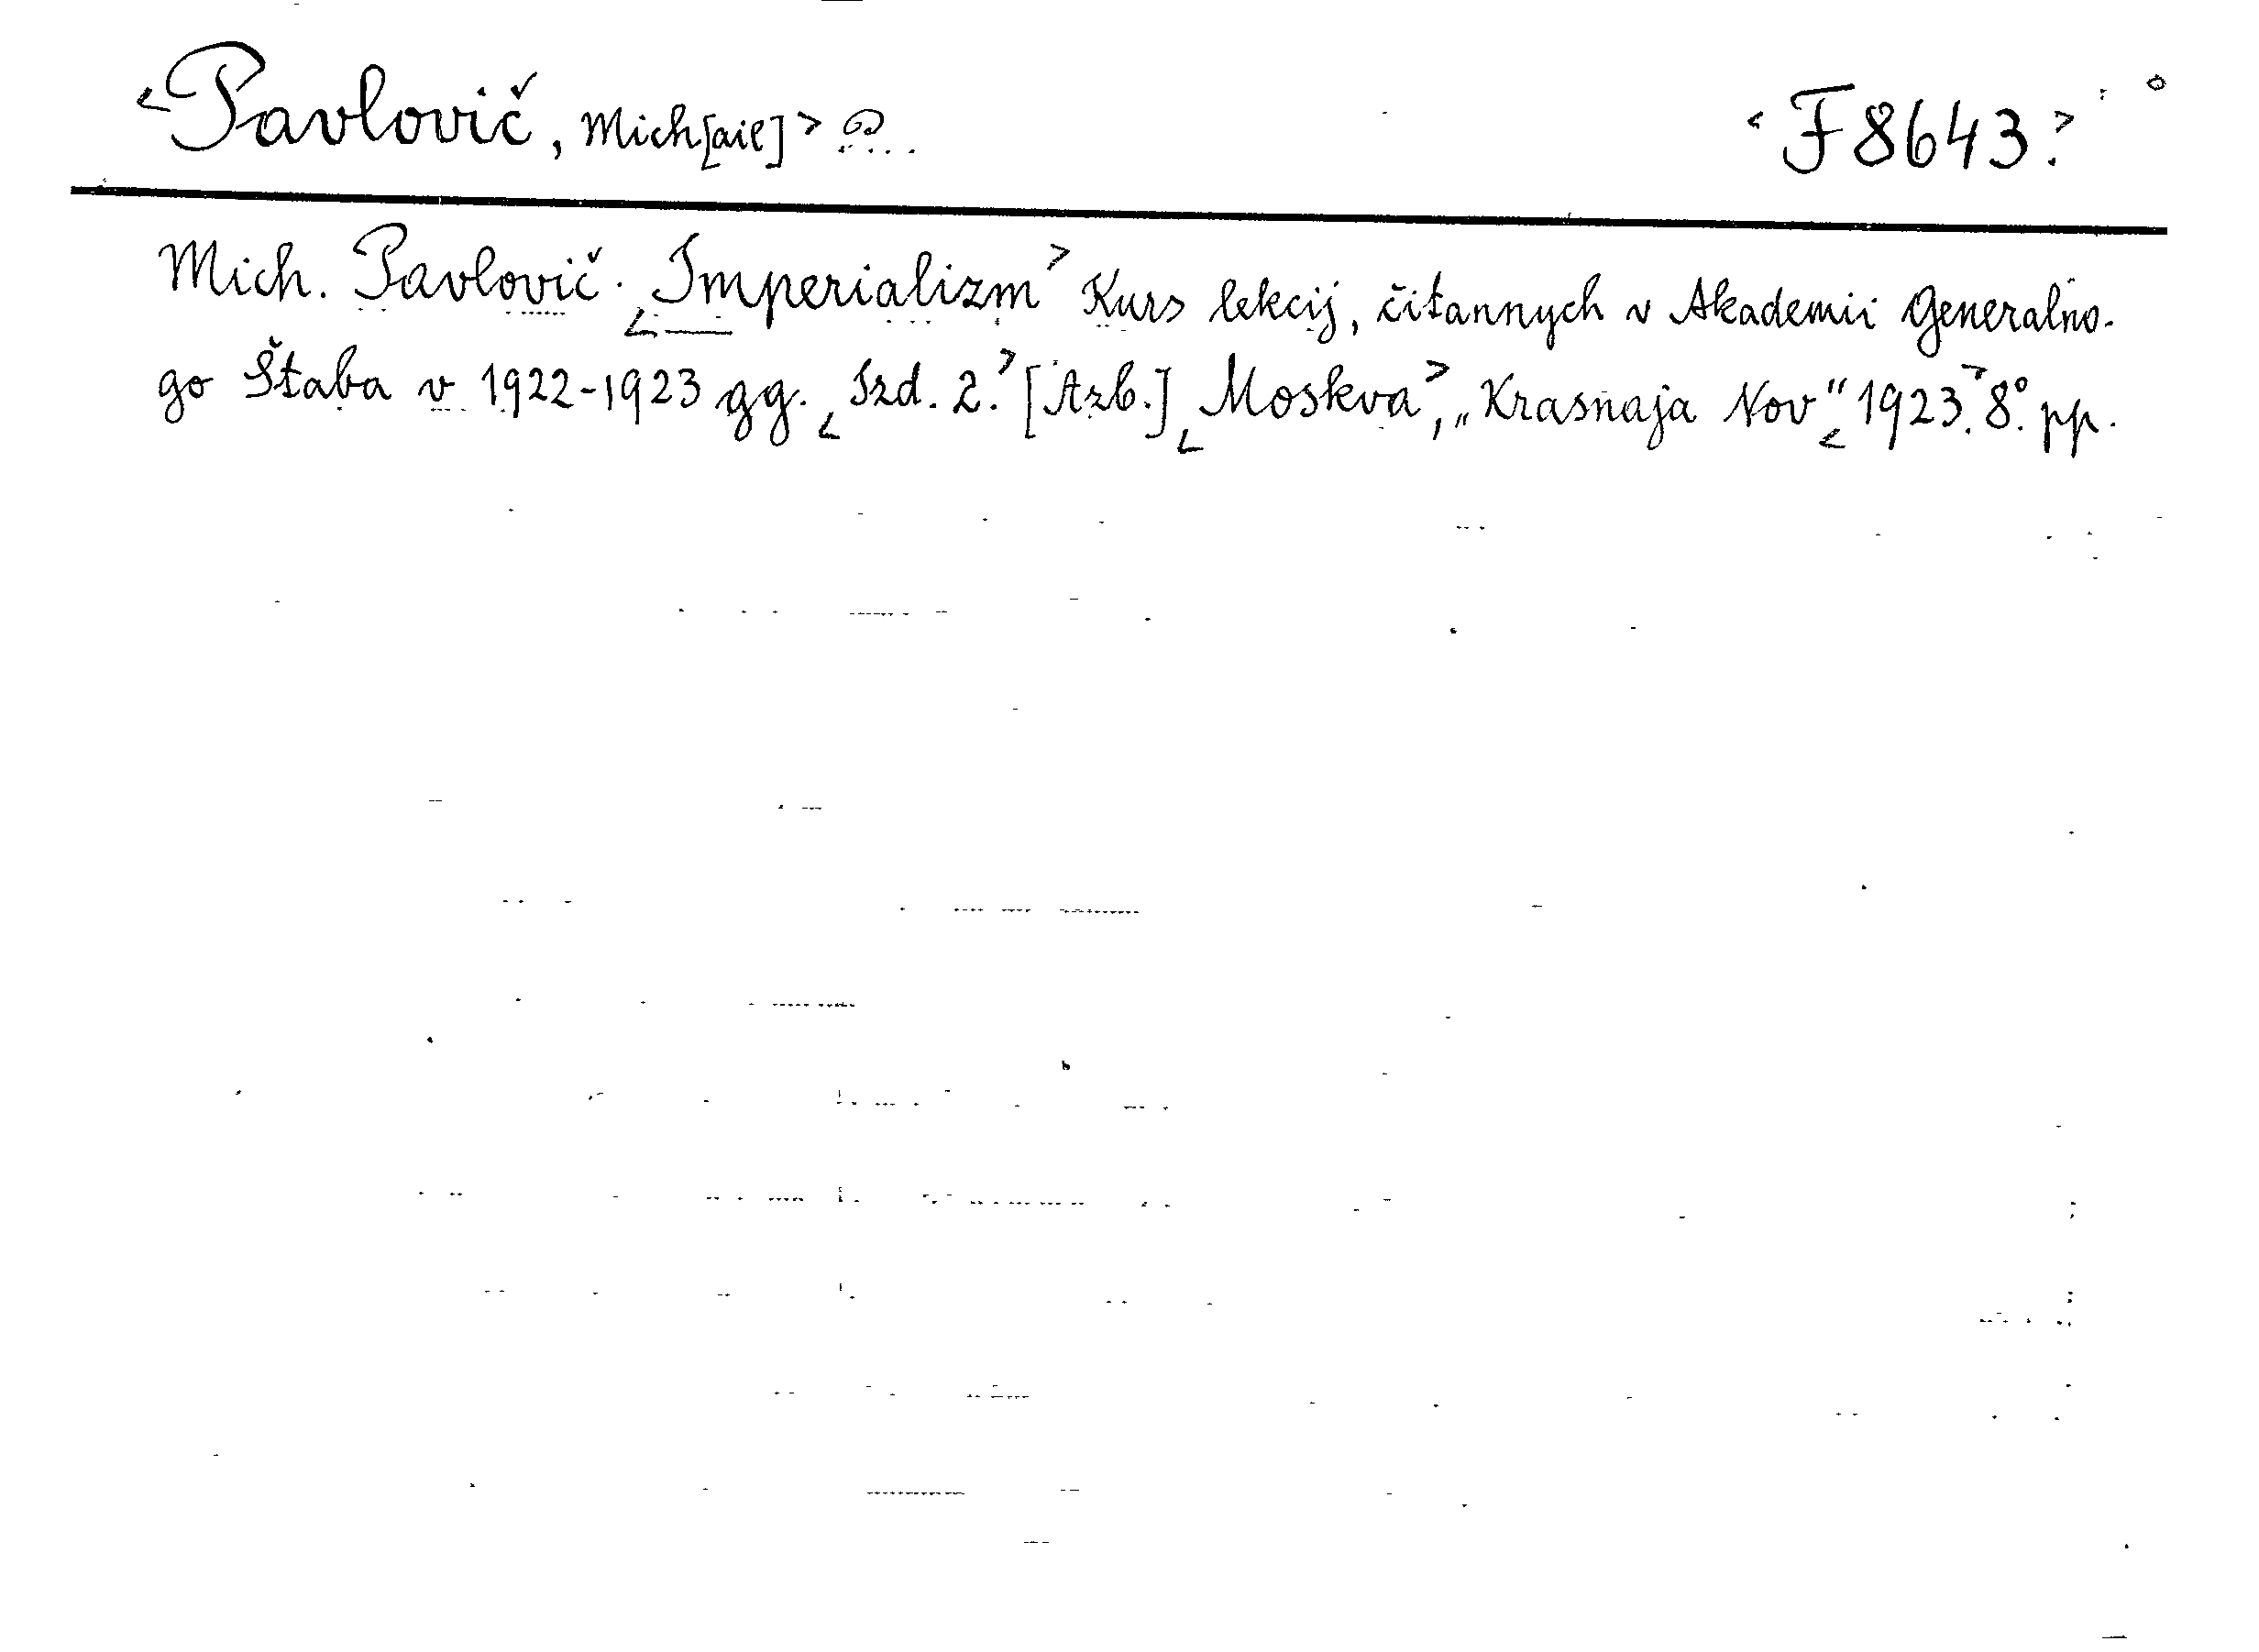 <Pavlovič, Mich[ail]> <F 8643.>
Mich. Pavlovič. <Imperializm> Kurs lekcij, čitannych v Akademii Generalno-
go Štaba v 1922-1923 gg. <Izd. 2.> [Azb.] <Moskva>, „Krasnaja Nov" <1923.> 8°. pp.